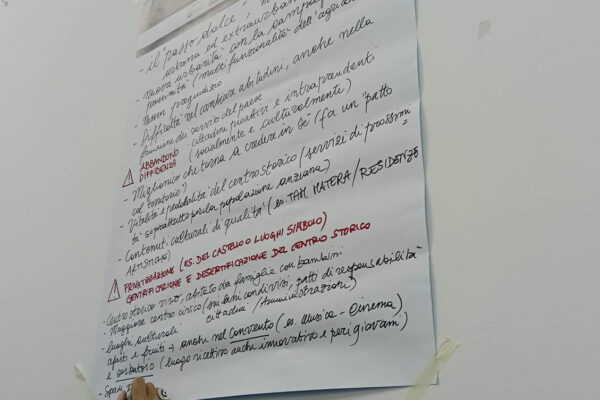 - il "passo dolce",
urbana ed extraurbana
- nuova urbanità con la campagna
prossimità (multifunzionalità dell'agricol
- Difficoltà nel cambiare abitudini, anche nella
fruizione dei servizi del paese
- cittadini proattivi e intraprendenti
(socialmente e culturalmente)
ABBANDONO
DIFFIDENZA
- Miglionico che torna a credere in sé (fa un "patto
col territorio")
- Vitalità e pedonalità del centro storico / servizi di prossimi
tà" soprattutto per la popolazione anziana)
- Contenuti culturali di qualità (es. TAM MATERA / RESIDENZE
ARTISTICHE)
PRIVATIZZAZIONE (ES. DEL CASTELLO O LUOGHI SIMBOLO)
GENTRIFICAZIONE E DESERTIFICAZIONE DEL CENTRO STORICO
- Centro storico vivo, abitato da famiglie con bambini
- Maggiore centro civico (sui beni condivisi, patti di responsabilità
cittadini / Amministrazioni)
- luoghi culturali
aperti e fruiti → anche nel convento (es. musica - cinema)
e serbatoio (luogo ricettivo anche innovativo e per i giovani)
- Spazi